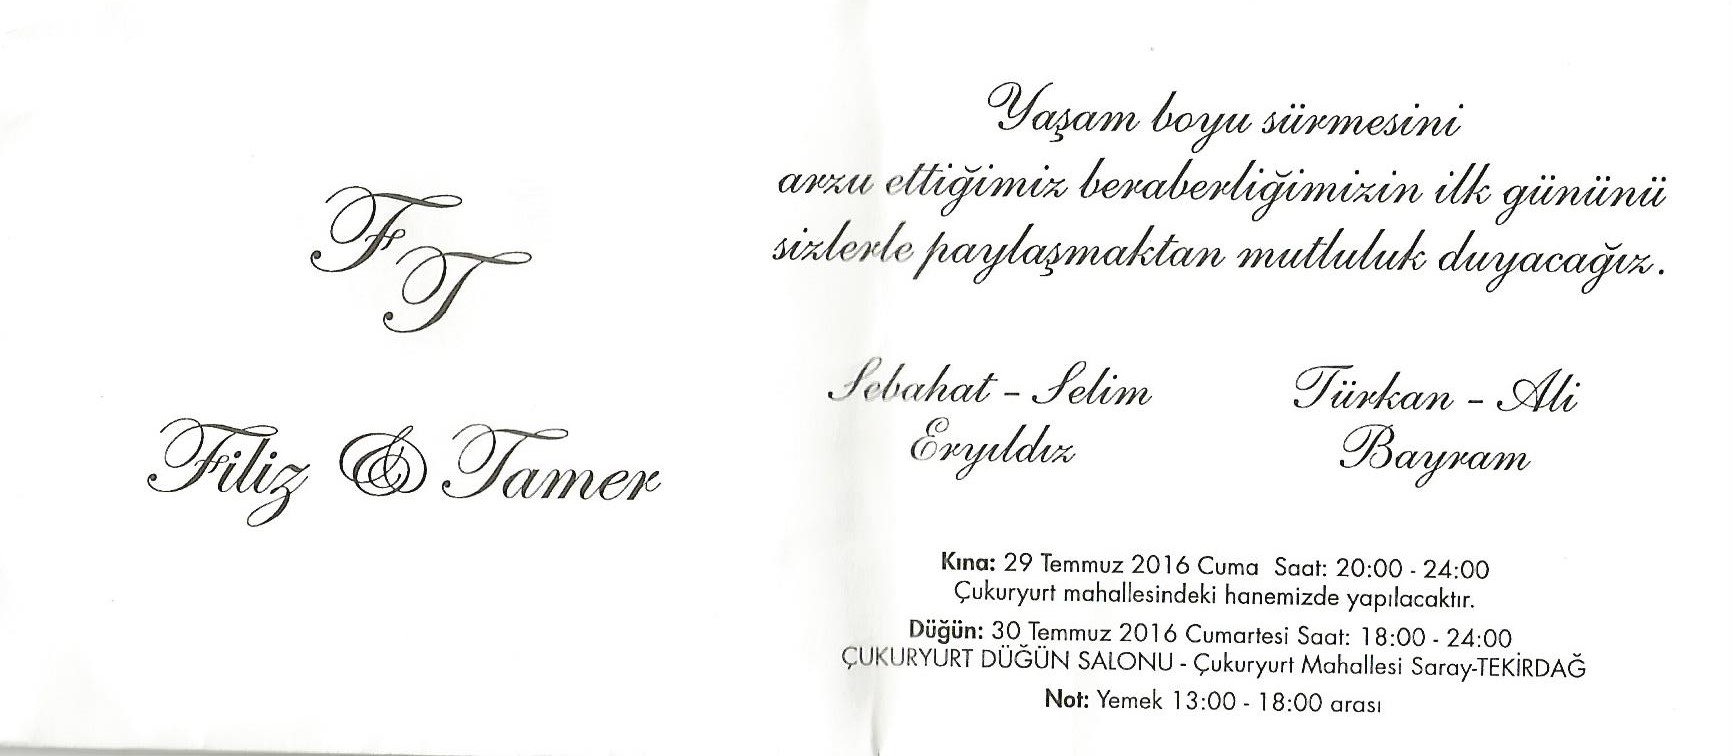 F
T
Filiz & Tamer
Yaşam boyu sürmesini
arzu ettiğimiz beraberliğimizin ilk gününü
sizlerle paylaşmaktan mutluluk duyacağız.
Sebahat - Selim
Eryıldız
Türkan - Ali
Bayram
Kına: 29 Temmuz 2016 Cuma Saat: 20:00 - 24:00
Çukuryurt mahallesindeki hanemizde yapılacaktır.
Düğün: 30 Temmuz 2016 Cumartesi Saat: 18:00 - 24:00
ÇUKURYURT DÜĞÜN SALONU - Çukuryurt Mahallesi Saray-TEKİRDAĞ
Not: Yemek 13:00 - 18:00 arası